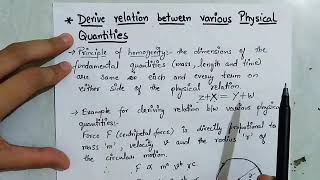 * Derive relation between various Physical
Quantities
→ Principle of homogenity:- the dimensions of the
fundamental quantities (mass, length and time)
are same in each and every term on
either side of the physical relation.
z+X = Y+W
→ Example for deriving relation b/w various physical
quantities:-
Force F (centripetal force) is directly proportional to
mass 'm', velocity v and the radius 'r' of
the circular motion.
F ∝ mᵃ vᵇ rᶜ